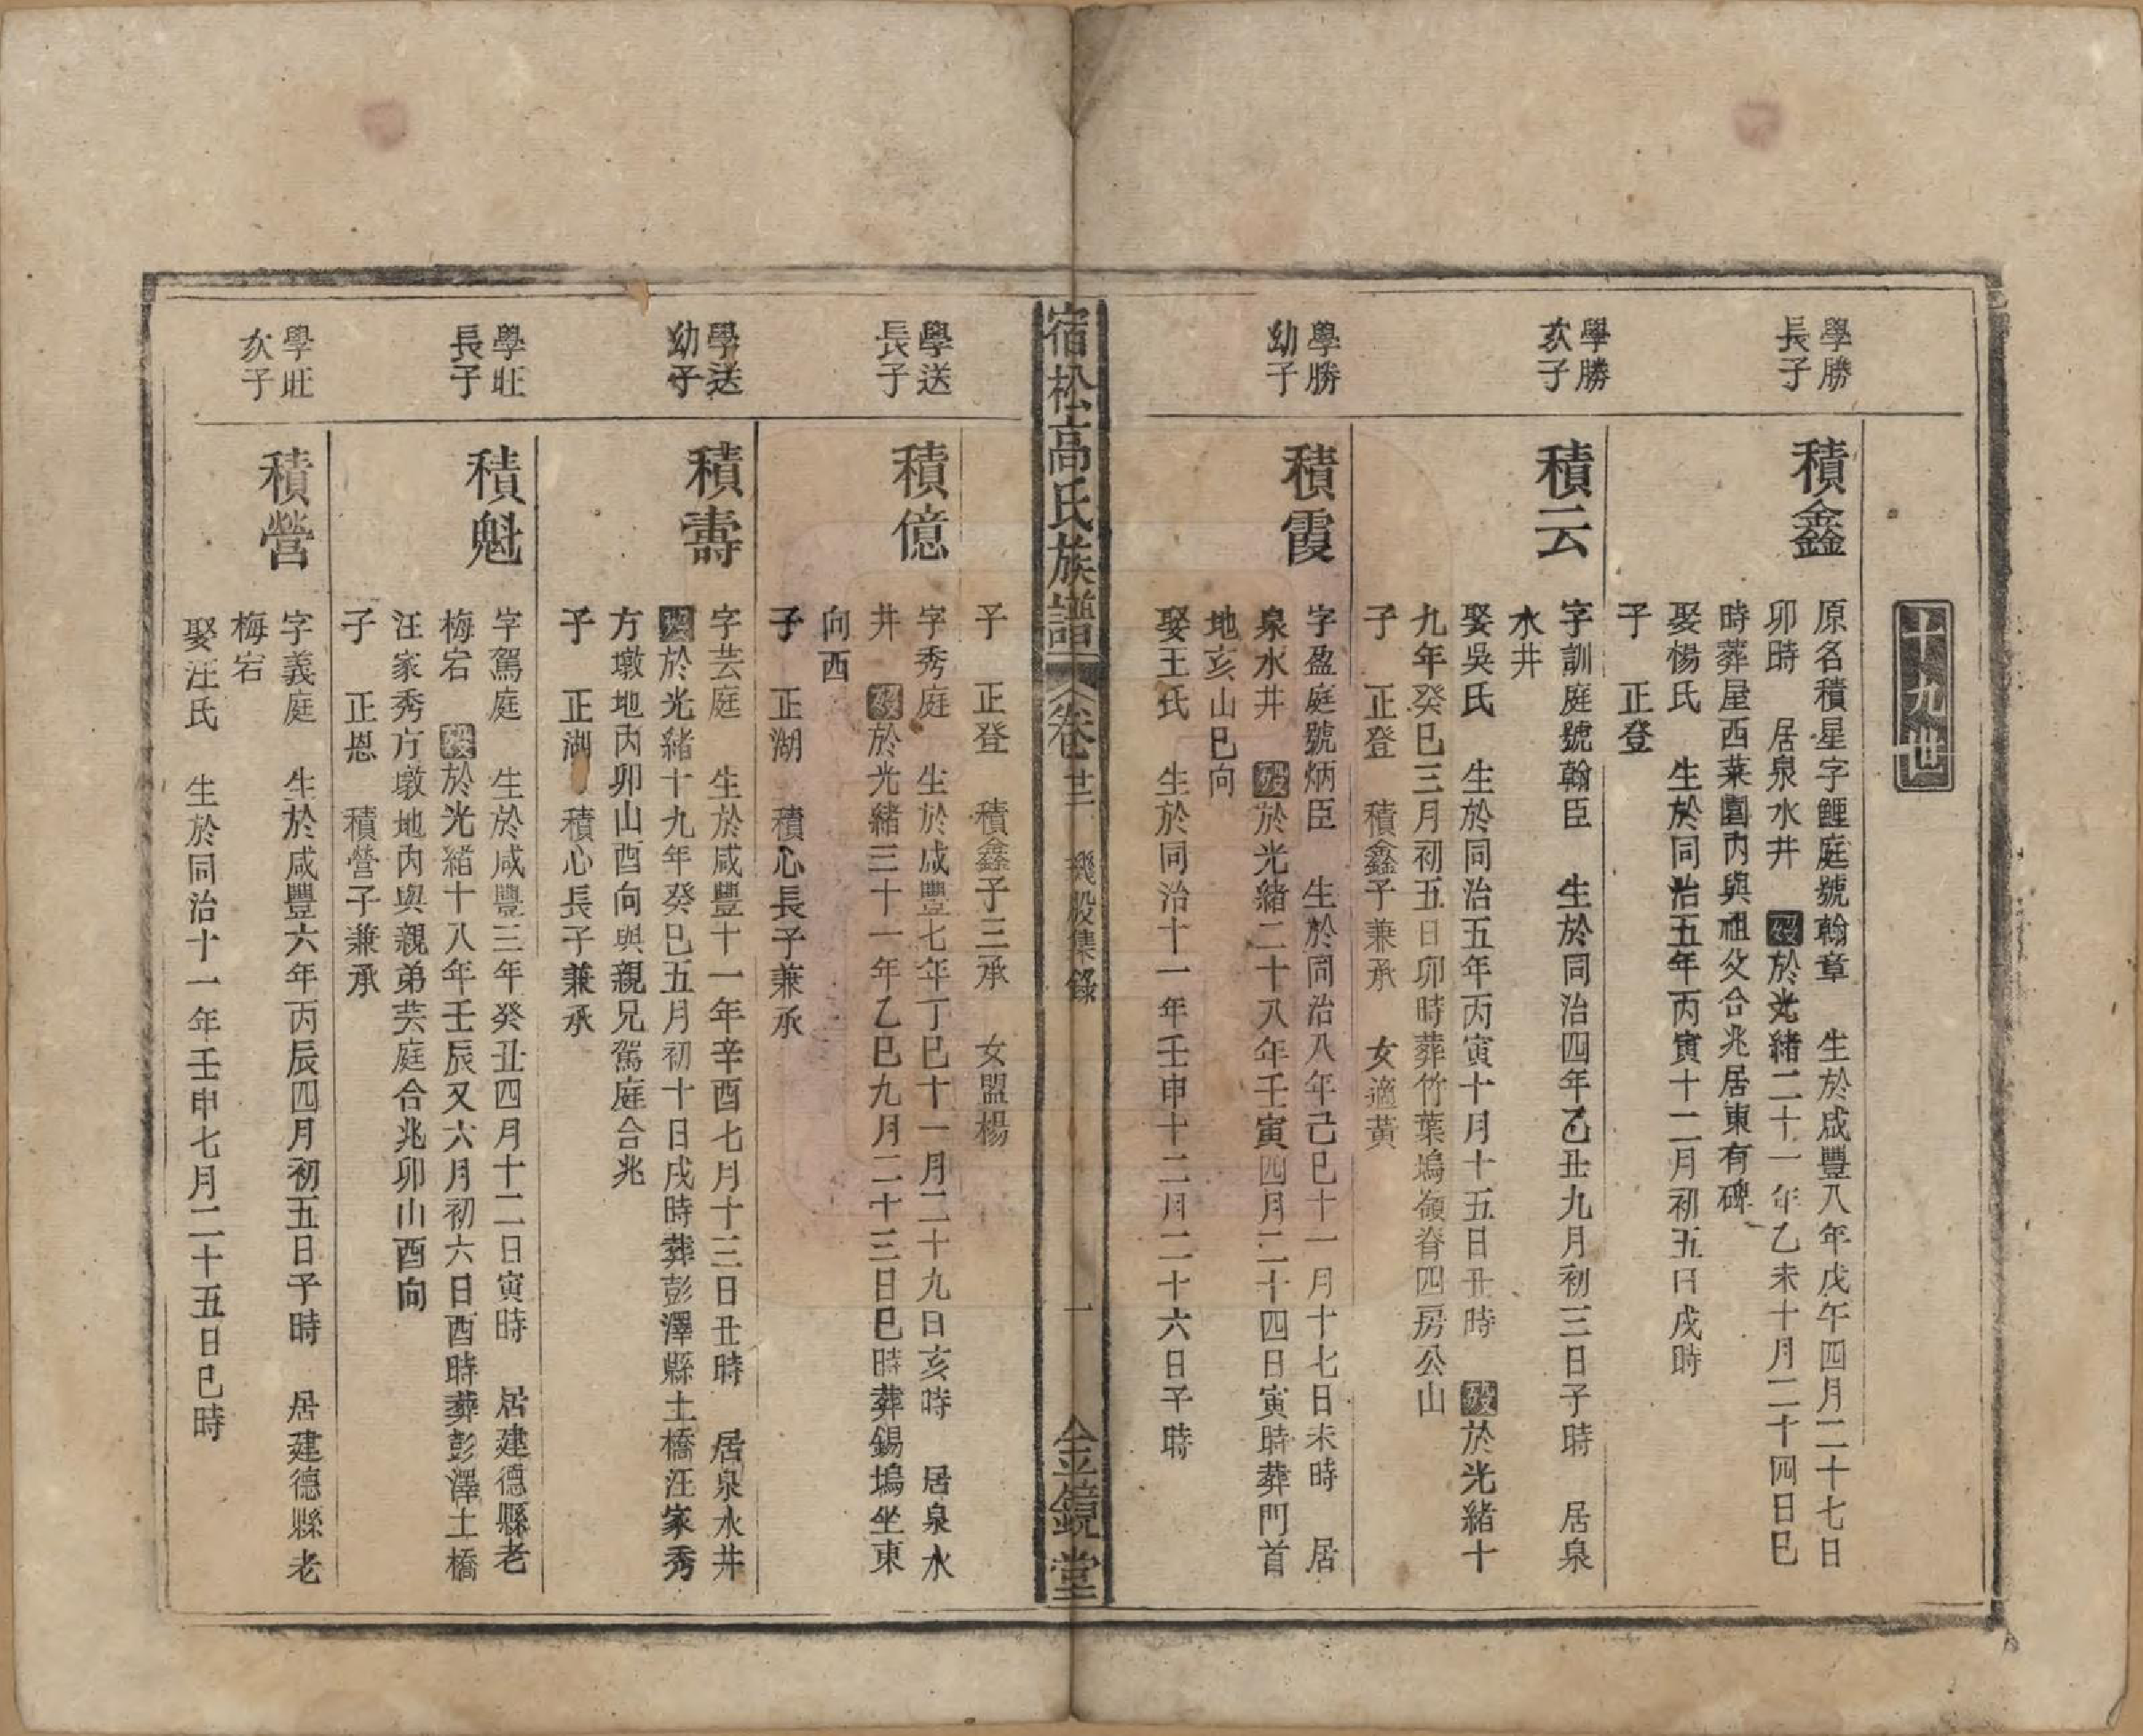 十九世
學勝
長子
積鑫
原名積星字鯉庭號翰章　生於咸豐八年戊午四月二十七日
卯時　居泉水井　歿於光緒二十一年乙未十月二十四日巳
時葬屋西菜園內與祖父合兆居東有碑
娶楊氏　生於同治五年丙寅十二月初五日戌時
子　正登
學勝
次子
積云
字訓庭號翰臣　生於同治四年乙丑九月初三日子時　居泉
水井
娶吳氏　生於同治五年丙寅十月十五日丑時　歿於光緒十
九年癸巳三月初五日卯時葬竹葉塢嶺脊四房公山
子　正登　積鑫子兼承　女適黃
學勝
幼子
積霞
字盈庭號炳臣　生於同治八年己巳十一月十七日未時　居
泉水井　歿於光緒二十八年壬寅四月二十四日寅時葬門首
地亥山巳向
娶王氏　生於同治十一年壬申十二月二十六日子時
宿松高氏族譜　卷廿二　幾股集錄　一　金鏡堂
子　正登　積鑫子三承　女盟楊
學送
長子
積億
字秀庭　生於咸豐七年丁巳十一月二十九日亥時　居泉水
井　歿於光緒三十一年乙巳九月二十三日巳時葬錫塢坐東
向西
子　正湖　積心長子兼承
學送
幼子
積壽
字芸庭　生於咸豐十一年辛酉七月十三日丑時　居泉水井
歿於光緒十九年癸巳五月初十日戌時葬彭澤縣土橋汪家秀
方墩地內卯山酉向與親兄駕庭合兆
子　正湖　積心長子兼承
學旺
長子
積魁
字駕庭　生於咸豐三年癸丑四月十二日寅時　居建德縣老
梅宕　歿於光緒十八年壬辰又六月初六日酉時葬彭澤土橋
汪家秀方墩地內與親弟芸庭合兆卯山酉向
子　正恩　積營子兼承
學旺
次子
積營
字義庭　生於咸豐六年丙辰四月初五日子時　居建德縣老
梅宕
娶汪氏　生於同治十一年壬申七月二十五日巳時